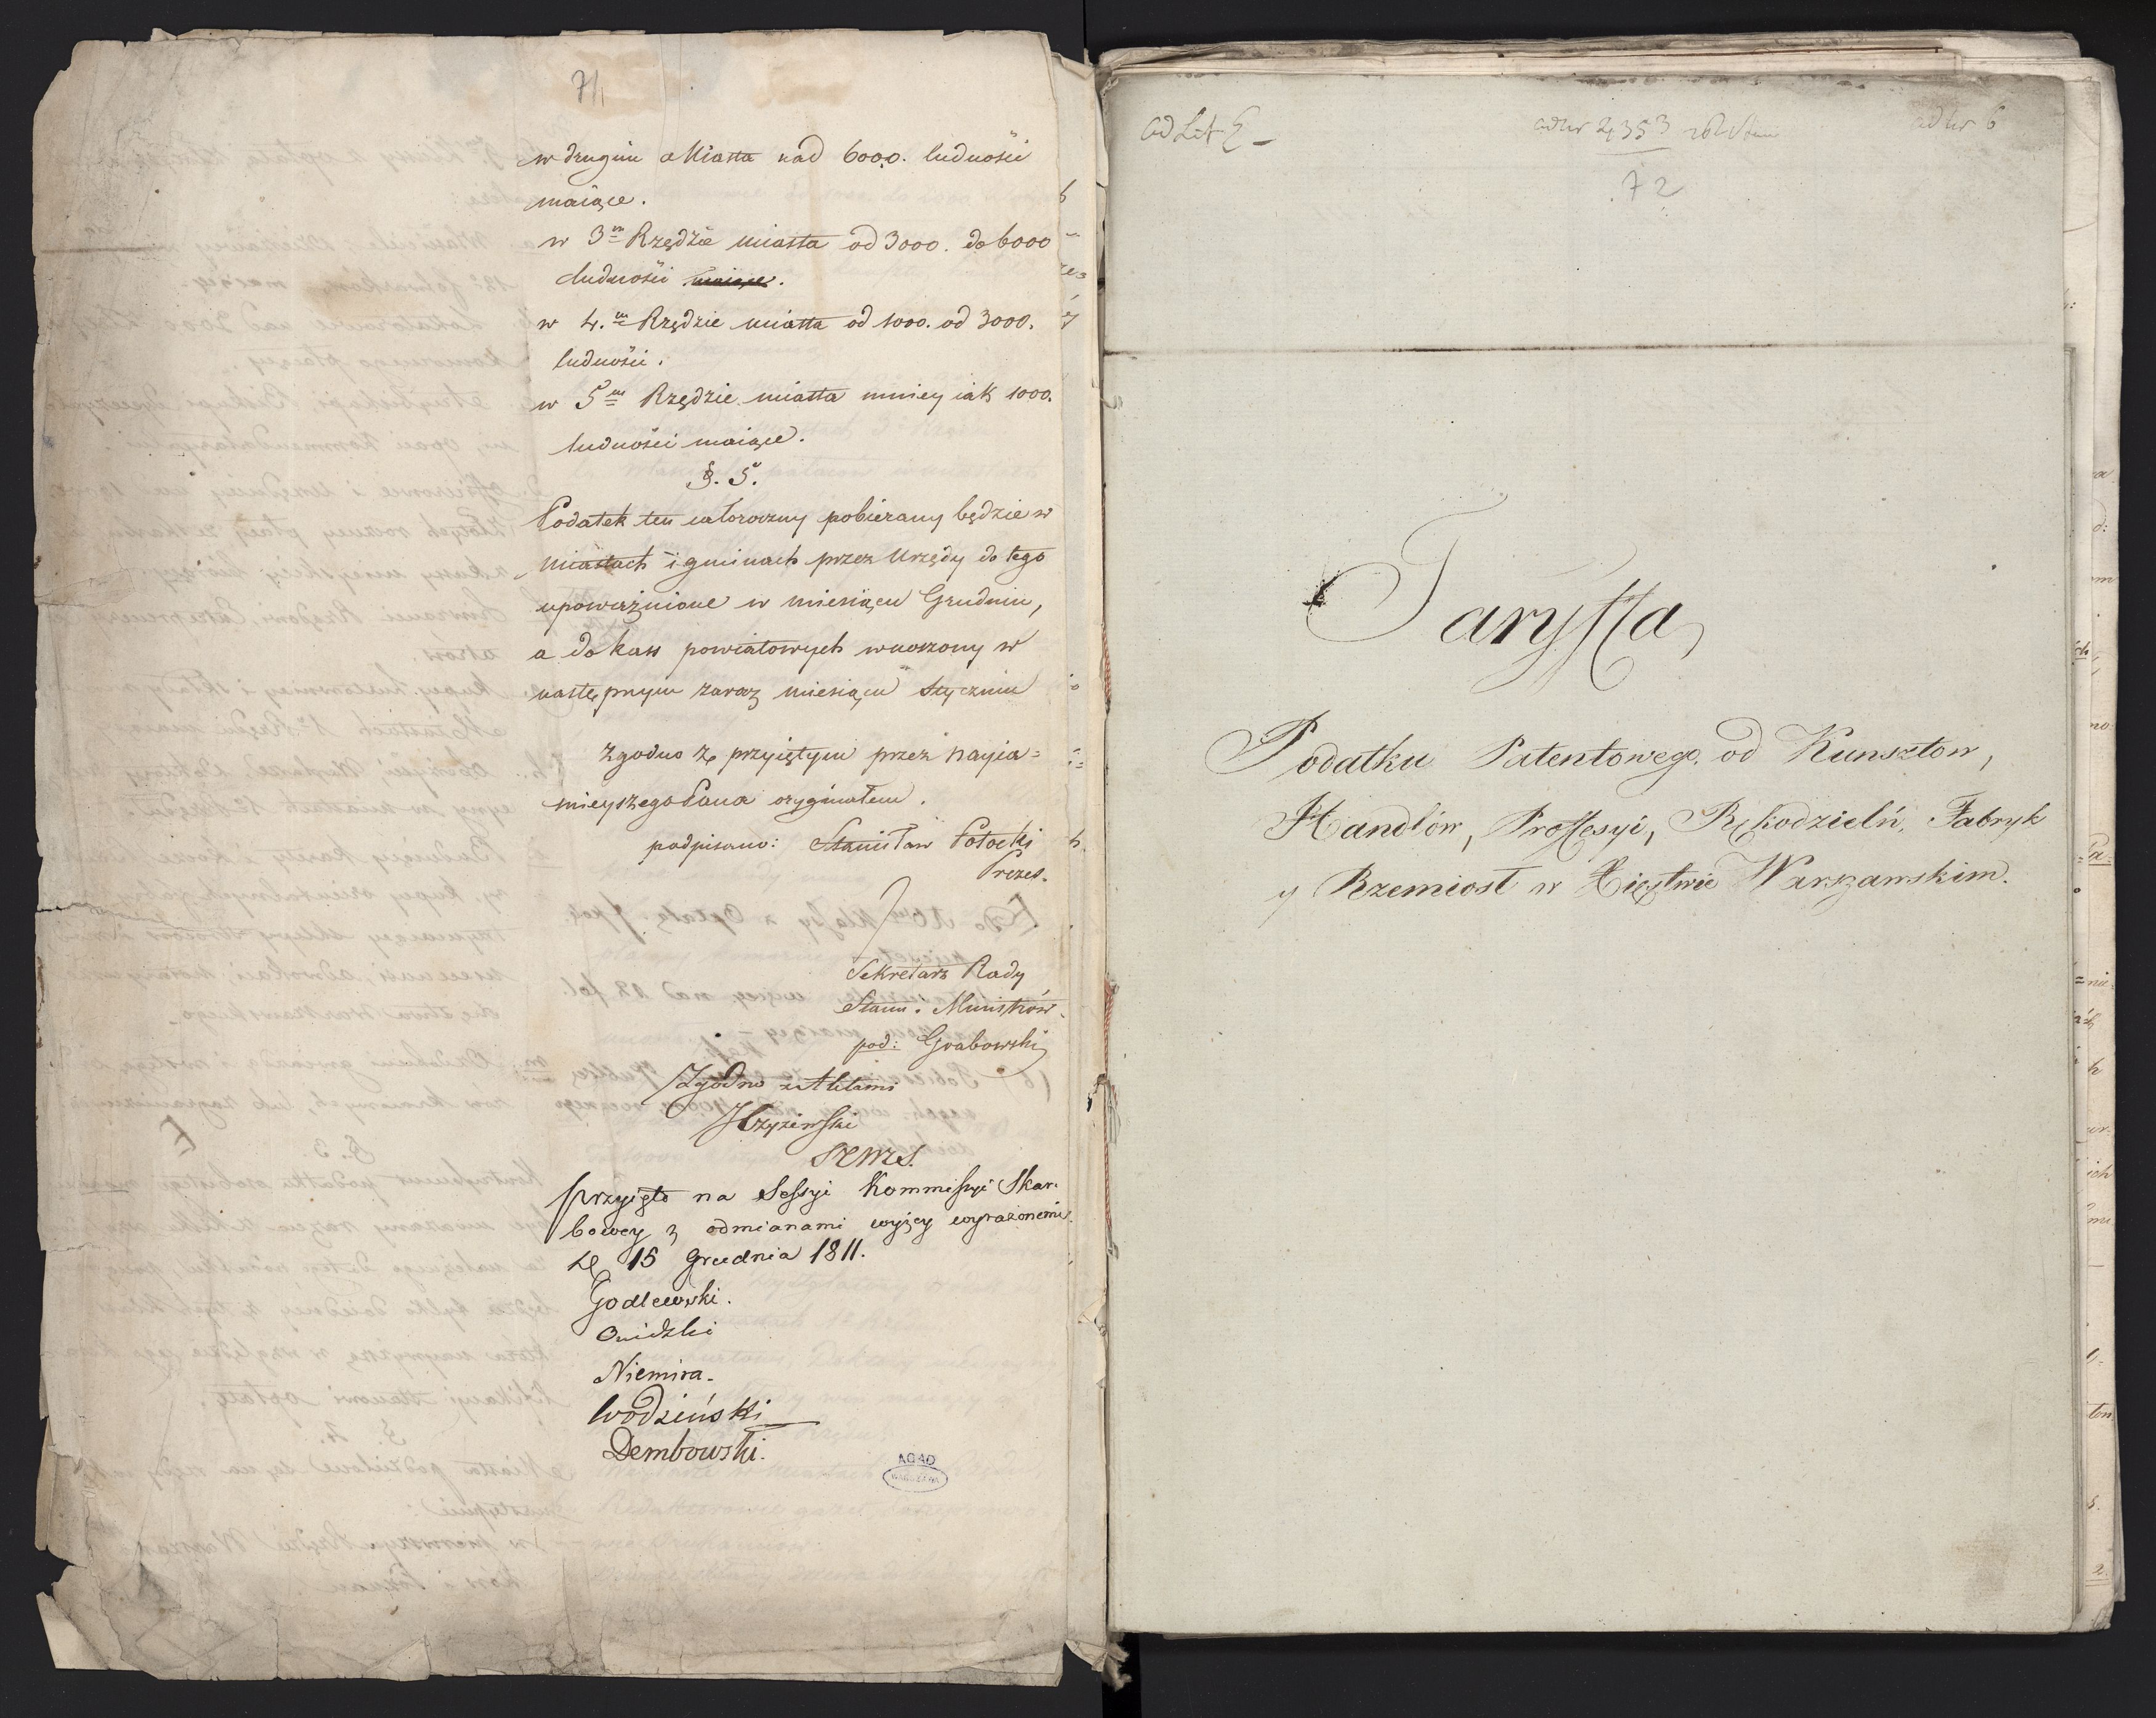 71
w drugim Miasta nad 6000. ludności
maiące.
w 3m Rzędzie miasta od 3000. do 6000
ludności maiące.
w 4.m Rzędzie miasta od 1000. od 3000.
ludności.
w 5m Rzędzie miasta mniey iak 1000.
ludności maiące.
§. 5.
Podatek ten całoroczny pobierany będzie w
miastach i gminach przez Urzędy do tego
upoważnione w miesiącu Grudniu,
a do kass powiatowych wnoszony w
następnym zaraz miesiącu Styczniu
Zgodno z przyiętym przez Nayia=
śnieyszego Pana oryginałem.
podpisano: Stanisław Potocki
Prezes.
Sekretarz Rady
Stanu i Ministrów
pod: Grabowski
Zgodno z Aktami
Przyięto na Sessyi Kommissyi Skar=
bowey z odmianami wyżey wyrażonemi
D. 15 Grudnia 1811.
Godlewski.
Niemira.
Wodziński
Dembowski.
AGAD
WARSZAWA
ad Lit E
ad Nr 2353
ad Nr 6
72
Taryffa
Podatku Patentowego od Kunsztow,
Handlów, Proffesyi, Rękodzielń, Fabryk
y Rzemiosł w Xięstwie Warszawskim.